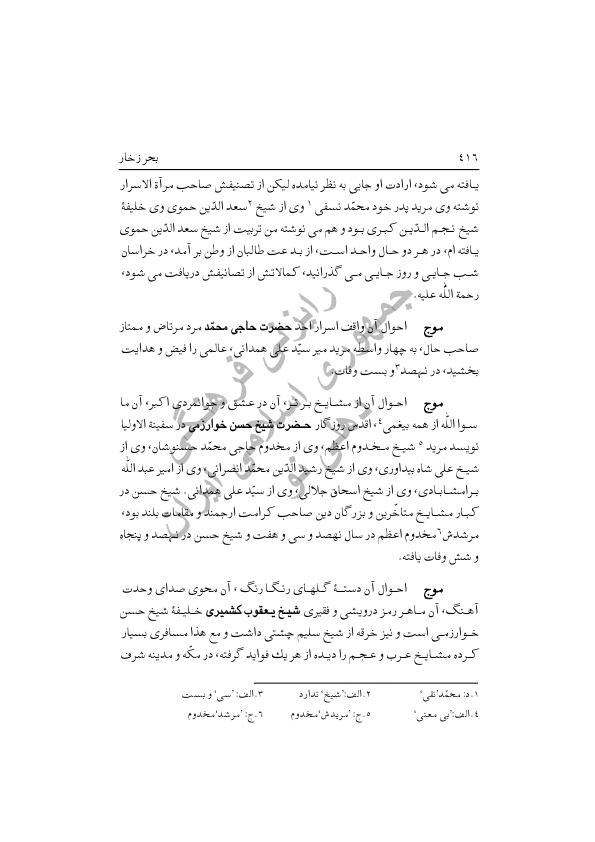 ٤١٦ بحر زخار
یافته می شود، ارادت او جایی به نظر نیامده لیکن از تصنیفش صاحب مرآة الاسرار
نوشته وی مرید پدر خود محمّد نسفی ۱ وی از شیخ ۲ سعد الدّین حموی وی خلیفهٔ
شیخ نجم الدّین کبری بود و هم می نوشته من تربیت از شیخ سعد الدّین حموی
یافته ام، در هر دو حال واحد است، از بد عت طالبان از وطن بر آمد، در خراسان
شب جایی و روز جایی می گذرانید، کمالاتش از تصانیفش دریافت می شود،
رحمة الله علیه.
موج احوال آن واقف اسرار احد حضرت حاجی محمّد مرد مرتاض و ممتاز
صاحب حال، به چهار واسطه مرید میر سیّد علی همدانی، عالمی را فیض و هدایت
بخشید، در نهصد ۳ و بست وفات.
موج احوال آن از مشایخ برتر، آن در عشق و جوانمردی اکبر، آن ما
سوا الله از همه بیغمی ٤، اقدس روزگار حضرت شیخ حسن خوارزمی در سفینة الاولیا
نویسد مرید ٥ شیخ مخدوم اعظم، وی از مخدوم حاجی محمّد حسنوشان، وی از
شیخ علی شاه بیداوری، وی از شیخ رشید الدّین محمّد انصرانی، وی از امیر عبد الله
برامشابادی، وی از شیخ اسحاق جلالی، وی از سیّد علی همدانی. شیخ حسن در
کبار مشایخ متأخرین و بزرگان دین صاحب کرامت ارجمند و مقامات بلند بود،
مرشدش ٦ مخدوم اعظم در سال نهصد و سی و هفت و شیخ حسن در نهصد و پنجاه
و شش وفات یافته.
موج احوال آن دستهٔ گلهای رنگا رنگ، آن محوی صدای وحدت
آهنگ، آن ماهر رمز درویشی و فقیری شیخ یعقوب کشمیری خلیفهٔ شیخ حسن
خوارزمی است و نیز خرقه از شیخ سلیم چشتی داشت و مع هذا مسافری بسیار
کرده مشایخ عرب و عجم را دیده از هر یك فواید گرفته، در مکّه و مدینه شرف
۱.د: محمّد'نقی' ۲.الف:'شیخ' ندارد ۳.الف: 'سی' و بست
٤.الف:'بی معنی' ٥.ج: 'مریدش'مخدوم ٦.ج: 'مرشد'مخدوم
رایزنی فرهنگی
جمهوری اسلامی ایران
دهلی نو